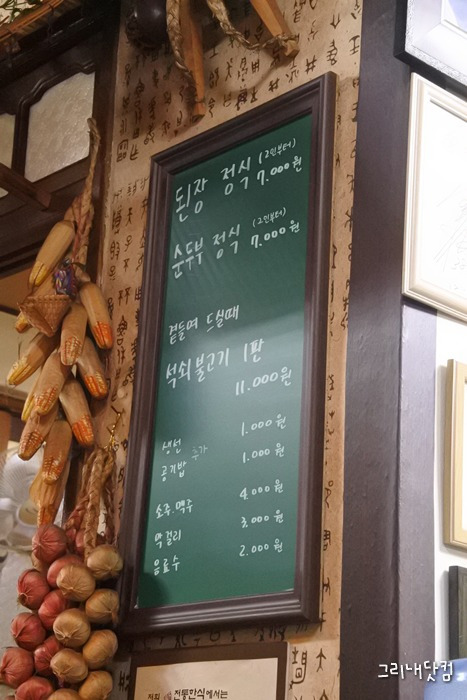 된장 정식 (2인부터) 7.000원
순두부 정식 (2인부터) 7.000원
곁들여 드실때
석쇠불고기 1판
11.000원
생선 추가 1.000원
공기밥 1.000원
소주.맥주 4.000원
막걸리 3.000원
음료수 2.000원
저희 전통한식에서는
그리내닷컴